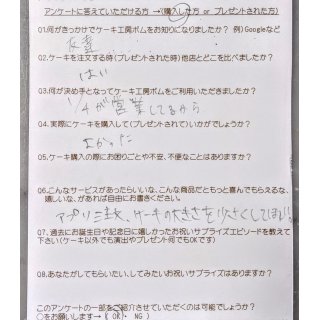 アンケートに答えていただける方 →(購入した方 or プレゼントされた方)
Q1.何がきっかけでケーキ工房ボムをお知りになりましたか? 例)Googleなど
友妻
Q2.ケーキを注文する時(プレゼントされた時)他店とどこを比べましたか?
はい
Q3.何が決め手となってケーキ工房ボムをご利用いただきましたか?
が営業してるから
Q4.実際にケーキを購入して(プレゼントされて)いかがでしょうか?
よかった
Q5.ケーキ購入の際にお困りごとや不安、不便なことはありますか?
Q6.こんなサービスがあったらいいな、こんな商品だともっと喜んでもらえるな、
嬉しいな、があれば自由にお書きください。
アプリ注文、ケーキの大きさを小さくしてほしい
Q7.過去にお誕生日や記念日に嬉しかったお祝いサプライズエピソードを教えて
下さい(ケーキ以外でも演出やプレゼント何でもOKです)
Q8.あなたがしてもらいたい、してみたいお祝いサプライズはありますか?
このアンケートの一部をご紹介させていただくのは可能でしょうか?
○をお願いします→( OK ・ NG )